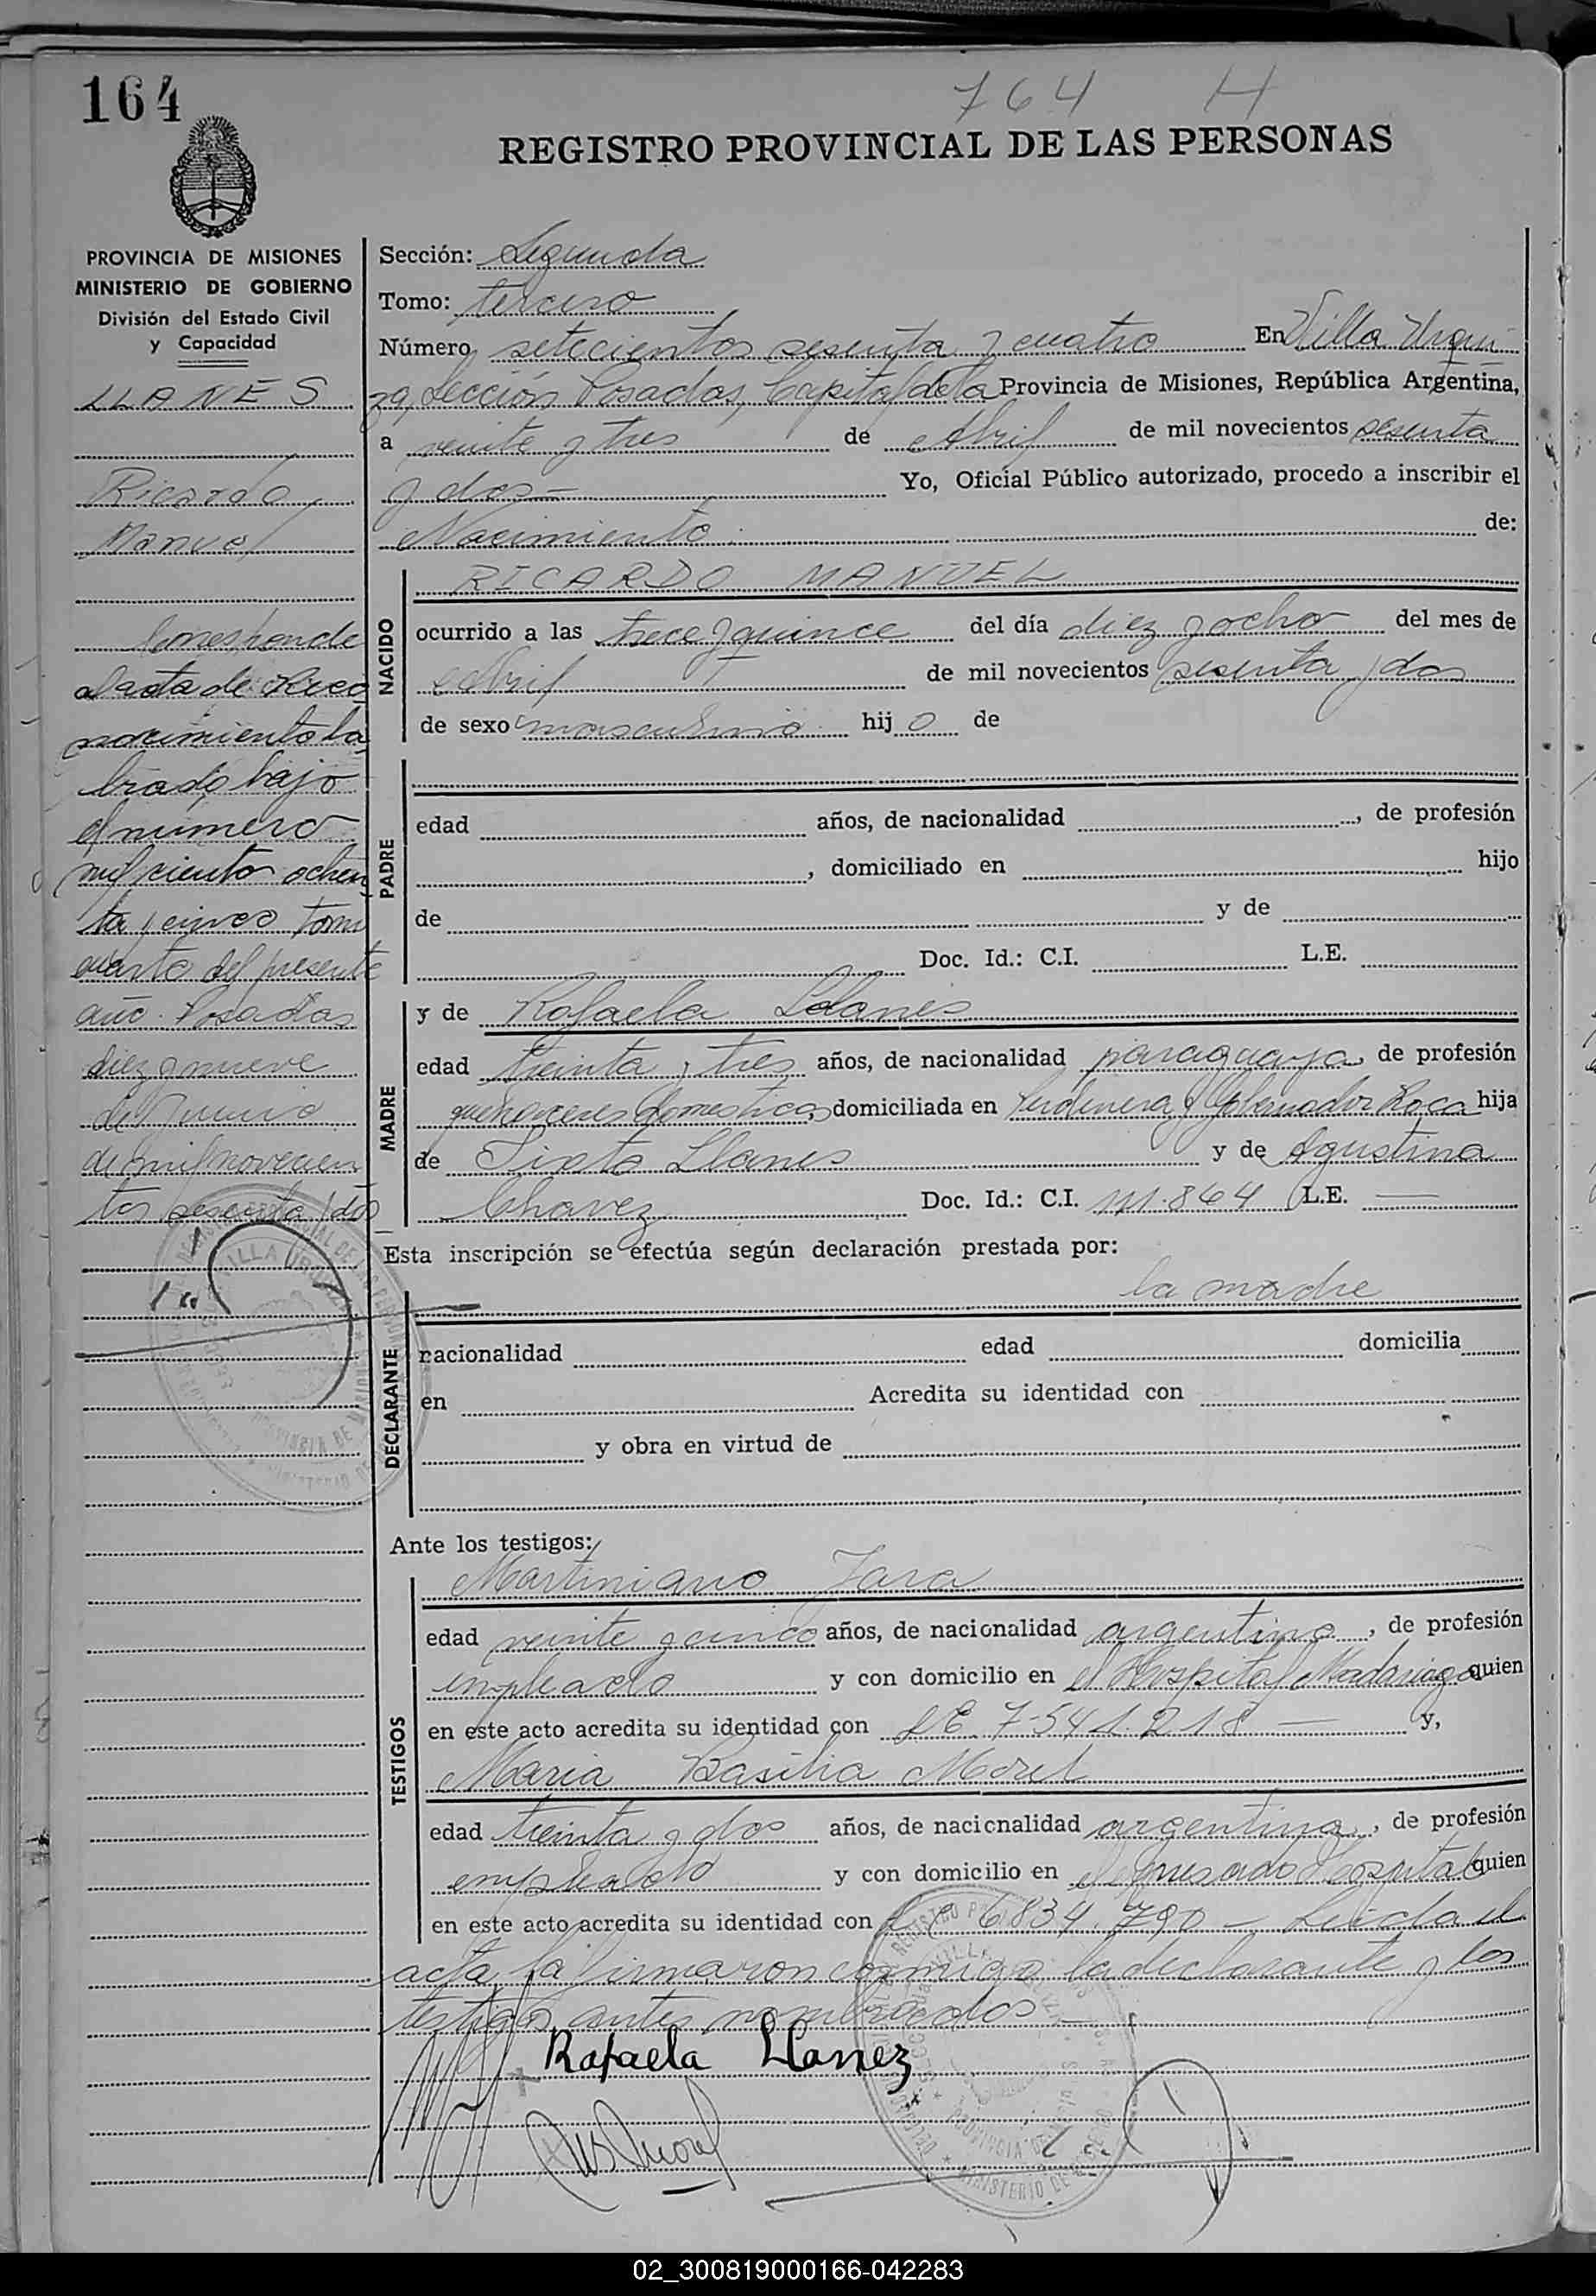 164
764 H
REGISTRO PROVINCIAL DE LAS PERSONAS
PROVINCIA DE MISIONES
MINISTERIO DE GOBIERNO
División del Estado Civil
y Capacidad
LLANES
Ricardo
Manuel
Corresponde
al acta de Reco
nocimiento la
brado bajo
el número
mil ciento ochen
ta y cinco tomo
cuarto del presente
año. Posadas
diez y nueve
de Junio
de mil novecien
tos sesenta y dos
Sección: Segunda
Tomo: tercero
Número setecientos sesenta y cuatro En Villa Urqui
za, Sección Posadas, Capital de la Provincia de Misiones, República Argentina,
a veinte y tres de Abril de mil novecientos sesenta
y dos - Yo, Oficial Público autorizado, procedo a inscribir el
Nacimiento de:
NACIDO
RICARDO MANUEL
ocurrido a las trece y quince del día diez y ocho del mes de
Abril de mil novecientos sesenta y dos
de sexo masculino hijo de
PADRE
edad años, de nacionalidad , de profesión
, domiciliado en hijo
de y de
Doc. Id.: C.I. L.E.
MADRE
y de Rafaela Llanes
edad treinta y tres años, de nacionalidad paraguaya, de profesión
quehaceres domesticos domiciliada en Gobernador Roca hija
de Sixto Llanes y de Agustina
Chavez Doc. Id.: C.I. 111.864 L.E. —
Esta inscripción se efectúa según declaración prestada por:
la madre
DECLARANTE
nacionalidad edad domicilia
en Acredita su identidad con
y obra en virtud de
Ante los testigos:
TESTIGOS
Martiniano Jara
edad veinte y cinco años, de nacionalidad argentino, de profesión
empleado y con domicilio en el Hospital Madariaga quien
en este acto acredita su identidad con LE 7.541.218 — y,
Maria Basilia Morel
edad treinta y dos años, de nacionalidad argentina, de profesión
empleado y con domicilio en el mencionado Hospital quien
en este acto acredita su identidad con 6834.790 - Leida el
acta la firmaron conmigo la declarante y los
testigos antes nombrados -
Rafaela Llanez
02_300819000166-042283